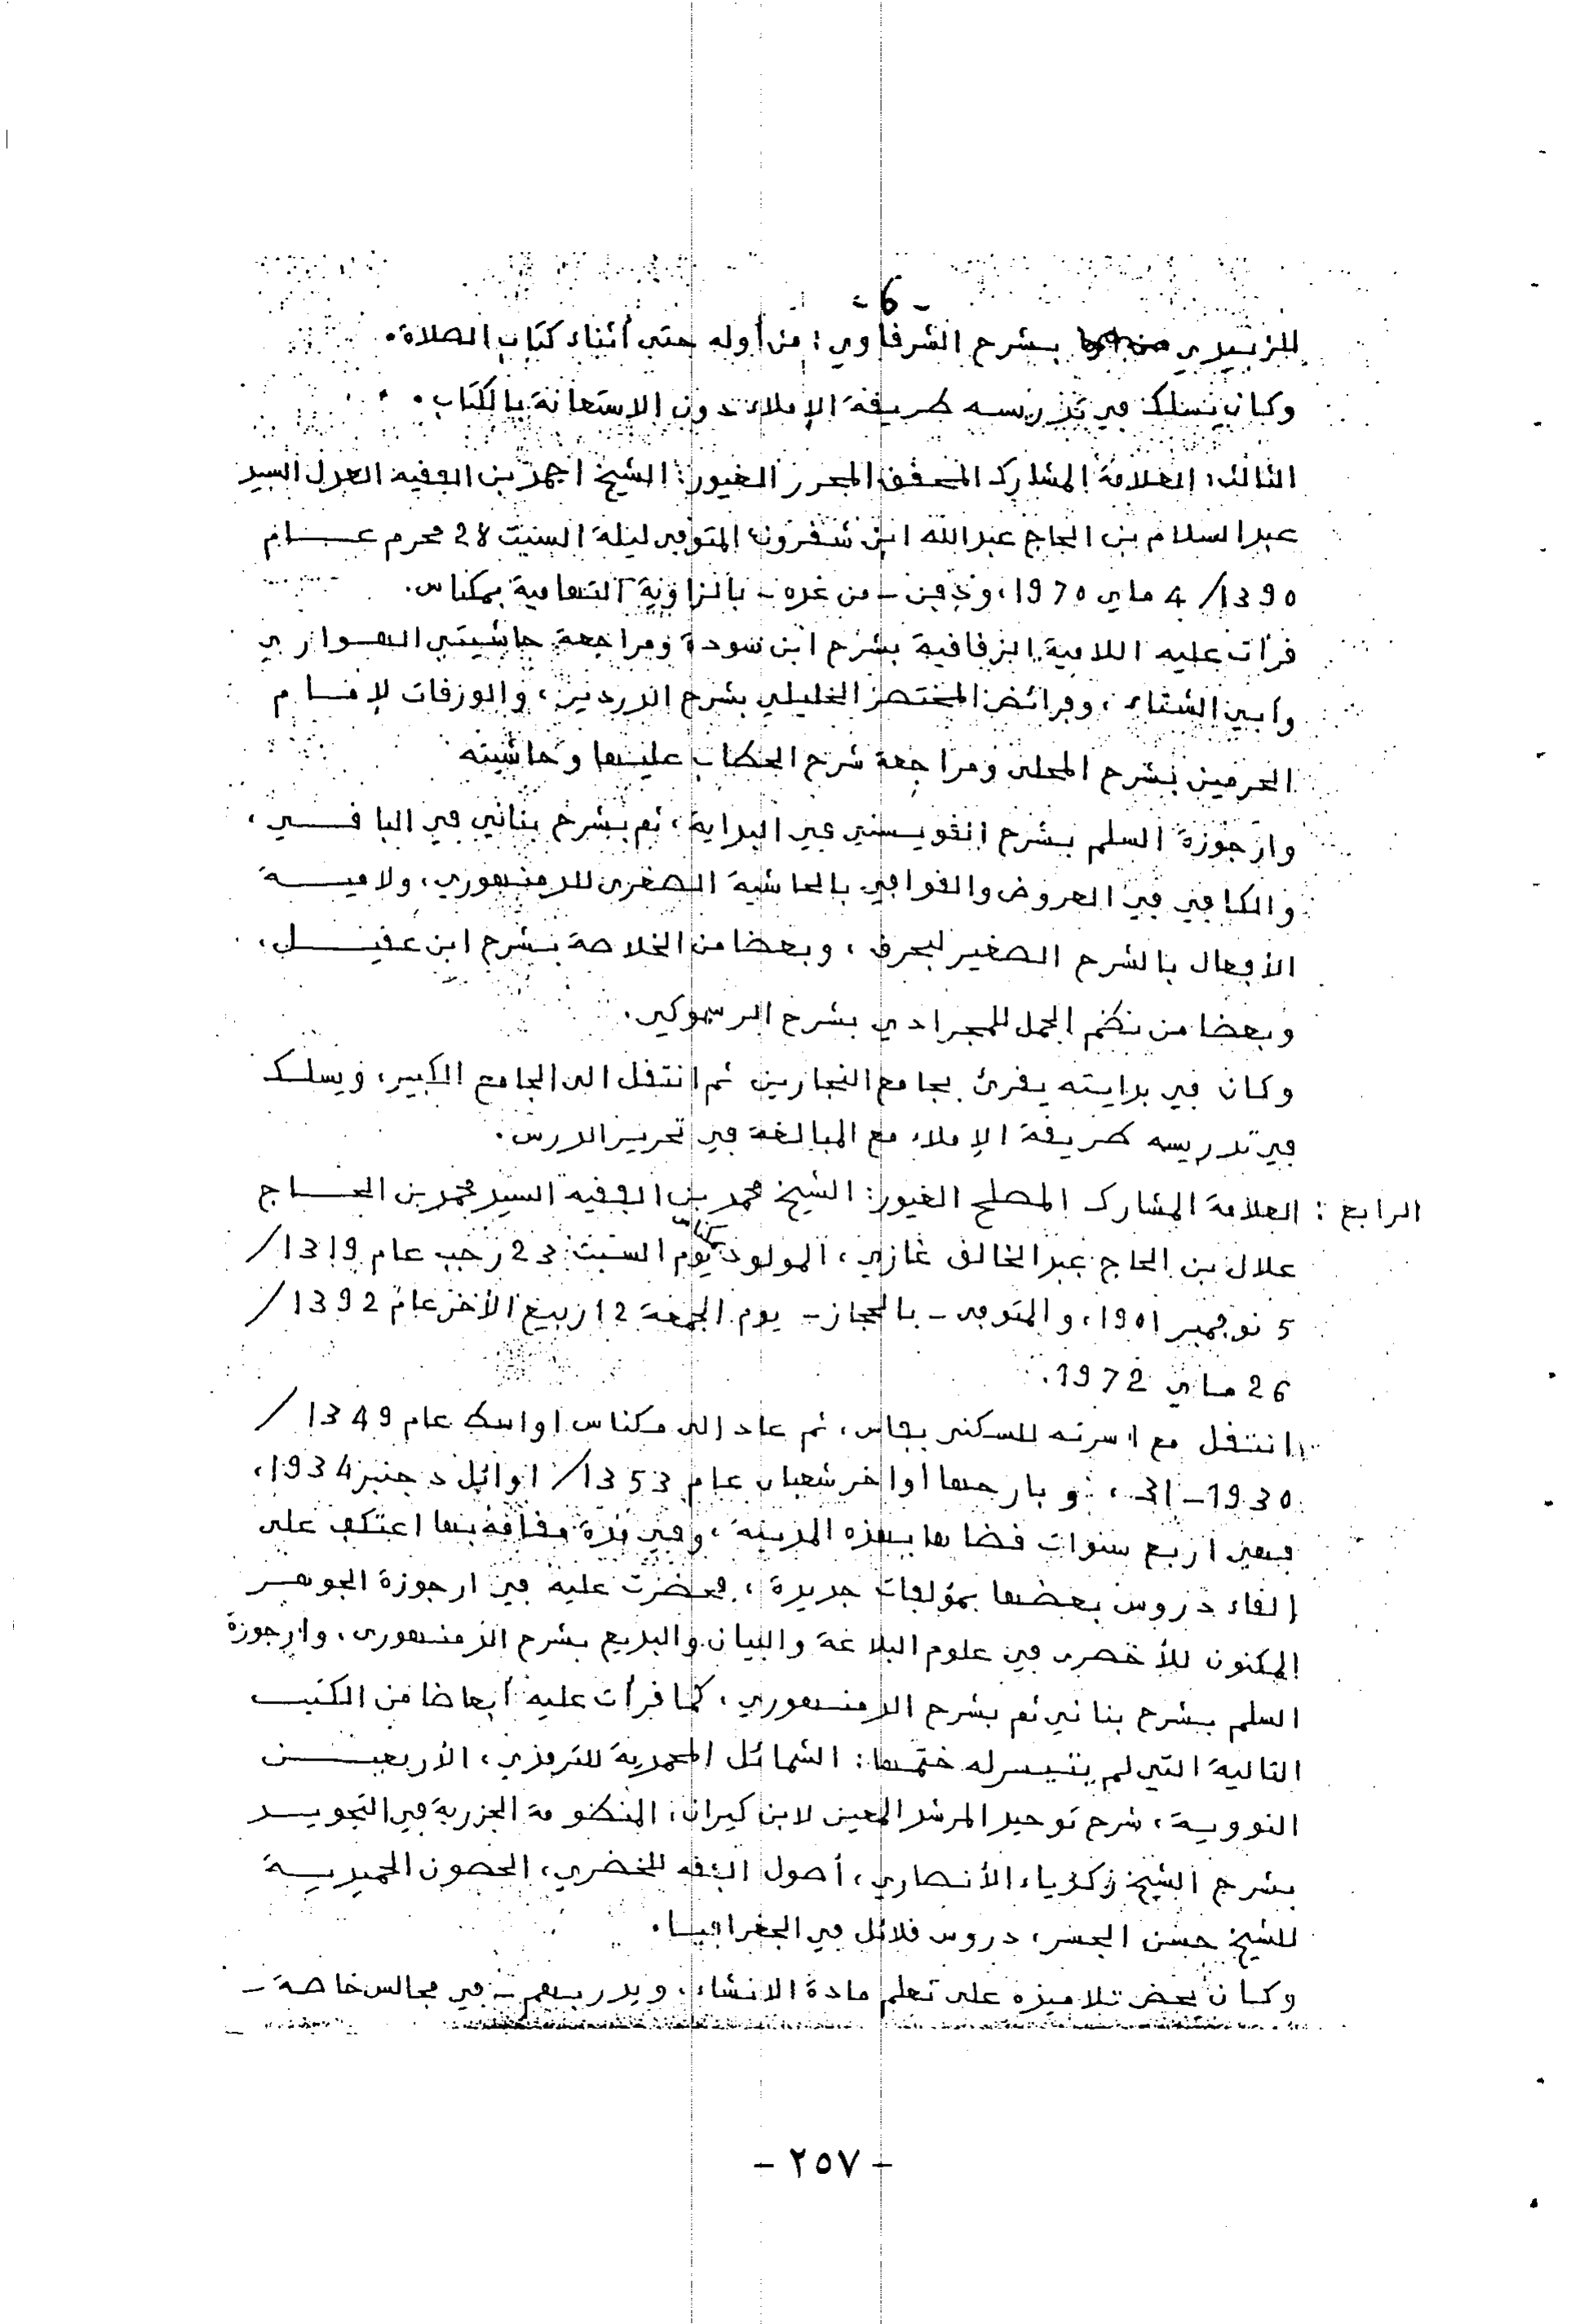 - 6 -
للزبيدي بشرح الشرقاوي: من أوله حتى أثناء كتاب الصلاة.
وكان يسلك في تدريسه طريقة الإملاء دون الاستعانة بالكتاب.
الثالث: العلامة المشارك المحقق المحرر الغيور: الشيخ احمد بن الفقيه العدل السيد
عبد السلام بن الحاج عبد الله ابن شقرون، المتوفى ليلة السبت 28 محرم عـــام
1390/ 4 ماي 1970، ودفن - من غده - بالزاوية التهامية بمكناس.
قرأت عليه اللامية الزقاقية بشرح ابن سودة ومراجعة حاشيتي الهـواري
وابي الشتاء، وفرائض المختصر الخليلي بشرح الدردير، والورقات لإمـــام
الحرمين بشرح المحلى ومراجعة شرح الحطاب عليها وحاشيته
وارجوزة السلم بشرح القويسني في البداية، ثم بشرح بناني في الباقــي،
والكافي في العروض والقوافي بالحاشية الصغرى للدمنهوري، ولاميــة
الأفعال بالشرح الصغير لبحرق، وبعضا من الخلاصة بشرح ابن عقيــل،
وبعضا من نظم الجمل للمجرادي بشرح الرسموكي.
وكان في بدايته يقرئ بجامع النجارين ثم انتقل الى الجامع الكبير، ويسلـك
في تدريسه طريقة الإملاء مع المبالغة في تحرير الدرس.
الرابع: العلامة المشارك المصلح الغيور: الشيخ محمد بن الفقيه السيد محمد بن الحــاج
علال بن الحاج عبد الخالق غازي، المولود يوم السبت 23 رجب عام 1319/
5 نوفمبر 1901، والمتوفى - بالحجاز - يوم الجمعة 12 ربيع الأخر عام 1392/
26 ماي 1972.
انتقل مع اسرته للسكنى بفاس، ثم عاد الى مكناس اواسط عام 1349/
1930-31، وبارحها أواخر شعبان عام 1353/ اوائل دجنبر 1934،
فهي اربع سنوات قضاها بهذه المدينة، وفي مدة مقامه بها اعتكف على
إلقاء دروس بعضها بمؤلفات جديدة، فحضرت عليه في ارجوزة الجوهـر
المكنون للأخضرى في علوم البلاغة والبيان والبديع بشرح الدمنهورى، وارجوزة
السلم بشرح بناني ثم بشرح الدمنهوري، كما قرأت عليه أبعاضا من الكتـب
التالية التي لم يتيسر له ختمها: الشمائل المحمدية للترمذي، الأربعيـــن
النووية، شرح توحيد المرشد المعين لابن كيران، المنظومة الجزرية في التجويــد
بشرح الشيخ زكرياء الأنصاري، أصول الفقه للخضري، الحصون الحميديــة
للشيخ حسن الجسر، دروس قلائل في الجغرافيـا.
وكان يحض تلاميذه على تعلم مادة الانشاء، ويدربهم - في مجالس خاصة -
- ٢٥٧ -